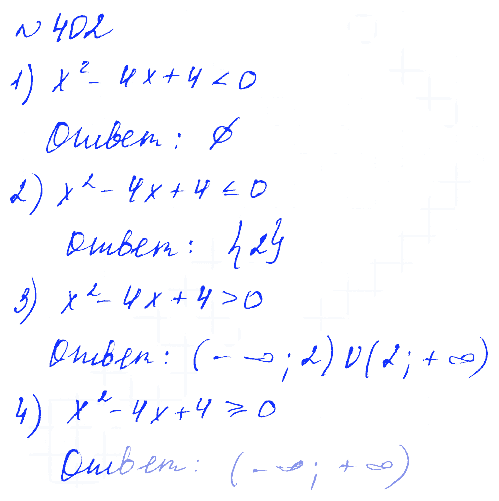 № 402
1) x² - 4x + 4 < 0
Ответ: ∅
2) x² - 4x + 4 ≤ 0
Ответ: {2}
3) x² - 4x + 4 > 0
Ответ: (-∞; 2) ∪ (2; +∞)
4) x² - 4x + 4 ≥ 0
Ответ: (-∞; +∞)